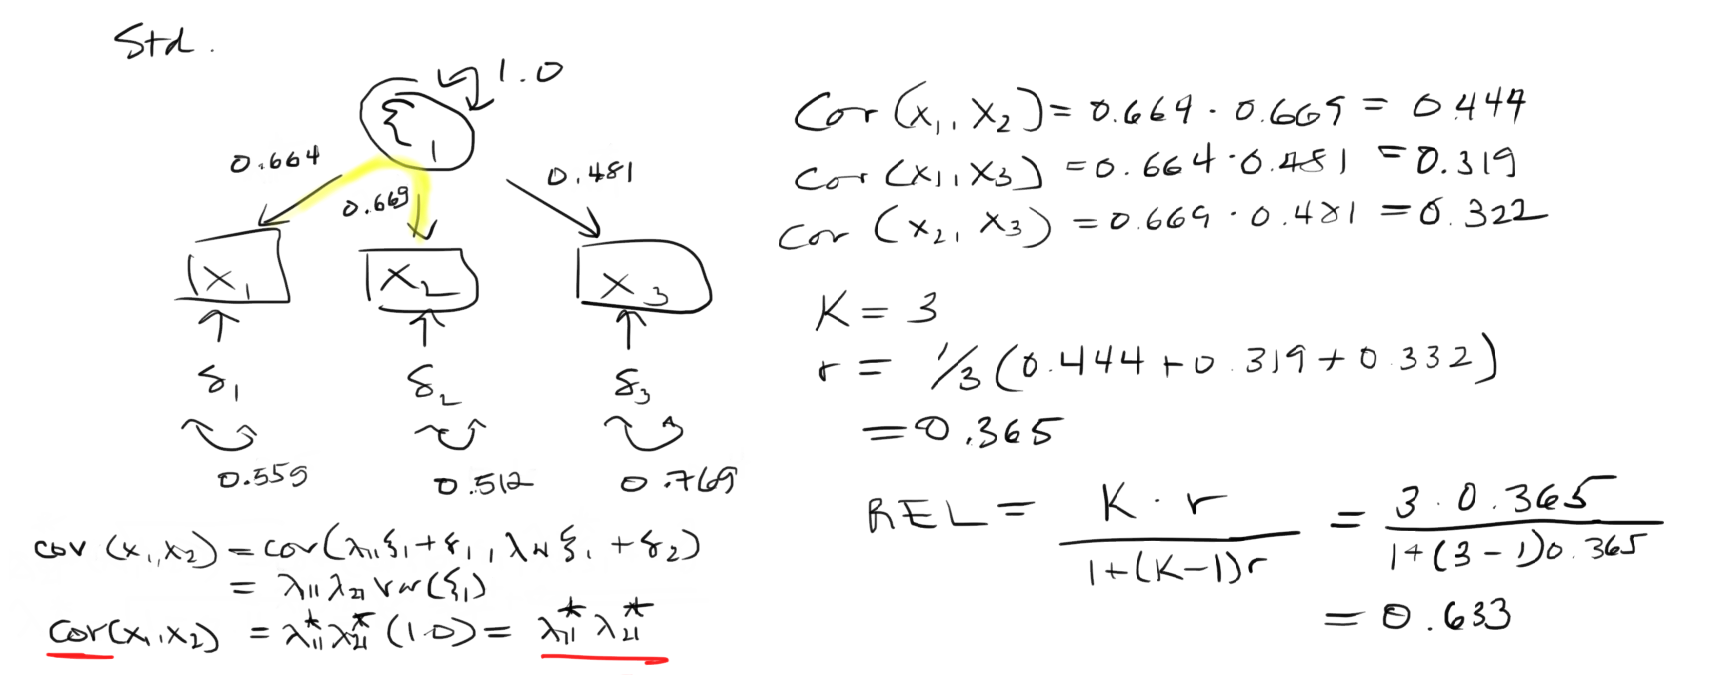 Std.
1.0
ξ1
0.664
0.669
0.481
x1
x2
x3
δ1
δ2
δ3
0.559
0.512
0.769
cov (x1, x2) = cov(λ11ξ1 + δ1, λ21ξ1 + δ2)
= λ11 λ21 Var(ξ1)
Cor(x1, x2) = λ*11 λ*21 (1.0) = λ*11 λ*21
Cor (x1, x2) = 0.664 · 0.669 = 0.444
Cor (x1, x3) = 0.664 · 0.481 = 0.319
Cor (x2, x3) = 0.669 · 0.481 = 0.322
K = 3
r = 1/3 (0.444 + 0.319 + 0.332)
= 0.365
REL = K · r / 1+(K-1)r = 3 · 0.365 / 1+(3-1)0.365
= 0.633